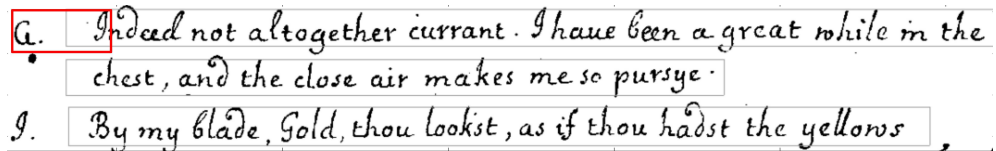 G. Indeed not altogether currant. I haue been a great while in the
chest, and the close air makes me so pursye.
I. By my blade, Gold, thou lookst, as if thou hadst the yellows